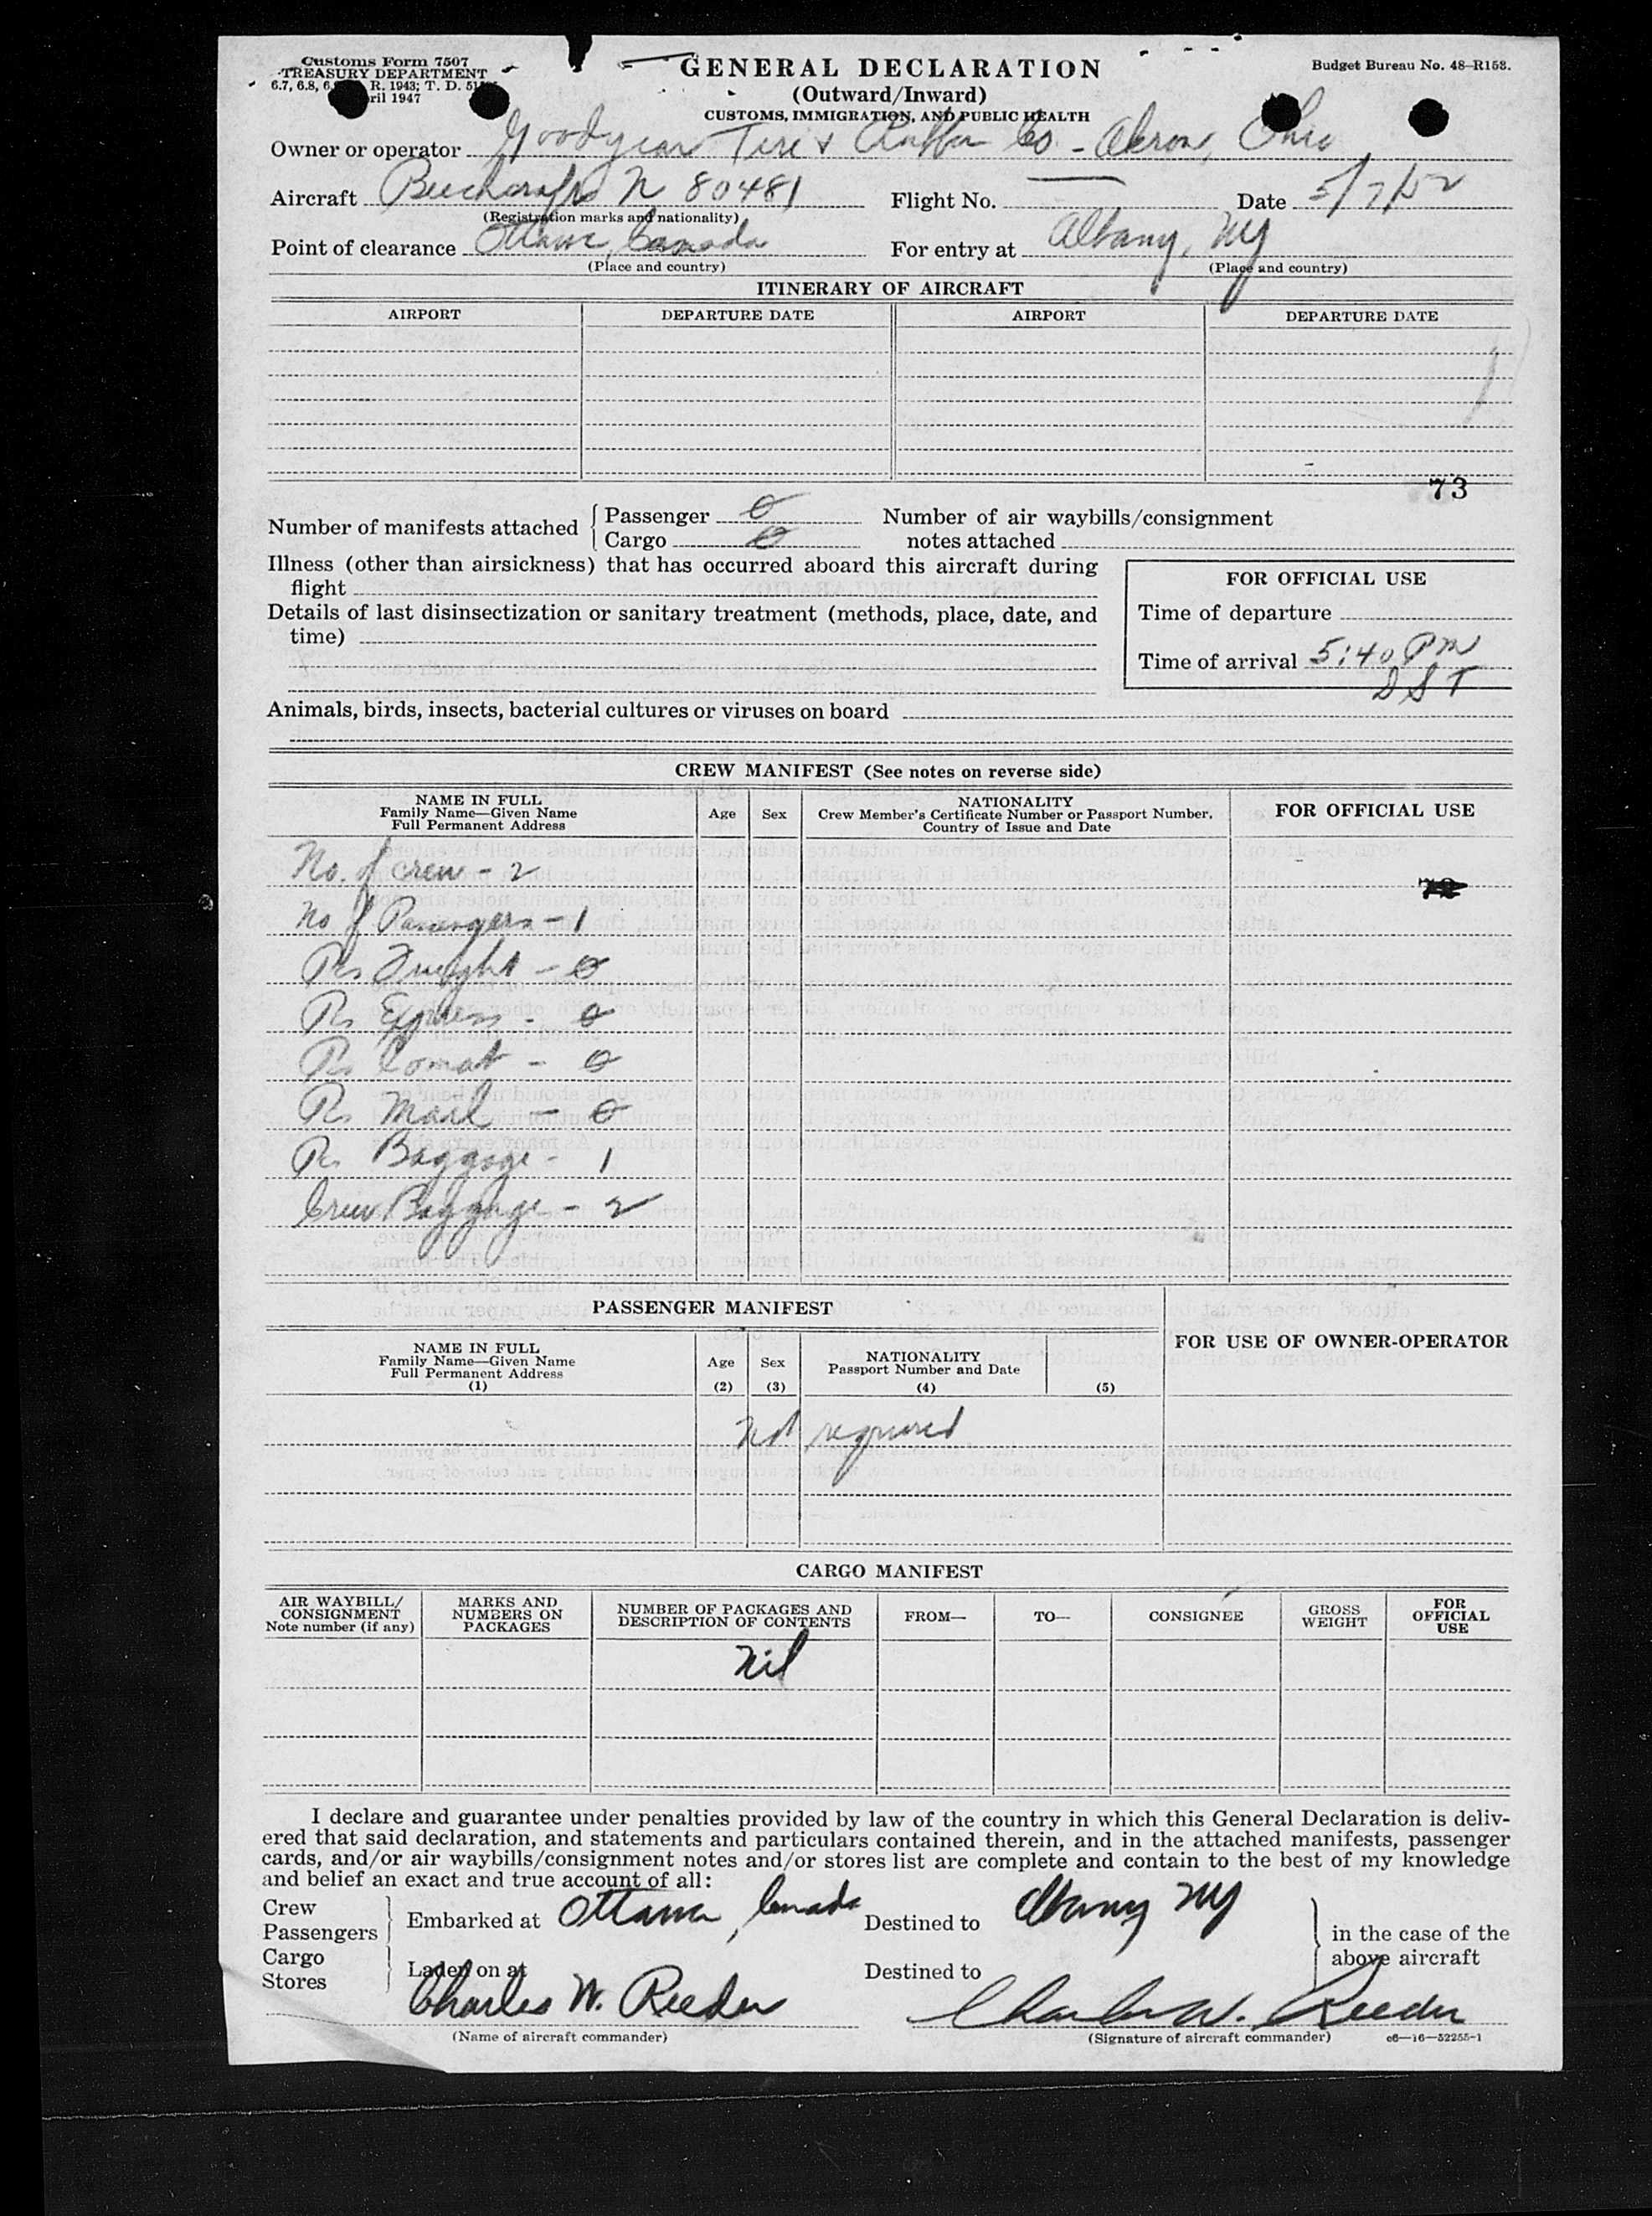 Customs Form 7507
TREASURY DEPARTMENT
6.7, 6.8, R. 1943; T. D.
1947
GENERAL DECLARATION
(Outward/Inward)
CUSTOMS, IMMIGRATION, AND PUBLIC HEALTH
Budget Bureau No. 48–R153.
Owner or operator Goodyear Tire & Rubber Co. - Akron, Ohio
Aircraft Beechcraft N 80481 Flight No. — Date 5/7/52
(Registration marks and nationality)
Point of clearance Ottawa, Canada For entry at Albany, NY
(Place and country) (Place and country)
ITINERARY OF AIRCRAFT
AIRPORT DEPARTURE DATE AIRPORT DEPARTURE DATE
73
Number of manifests attached { Passenger 0 Number of air waybills/consignment
Cargo 0 notes attached
Illness (other than airsickness) that has occurred aboard this aircraft during
flight
FOR OFFICIAL USE
Details of last disinsectization or sanitary treatment (methods, place, date, and
time)
Time of departure
Time of arrival 5:40 PM
DST
Animals, birds, insects, bacterial cultures or viruses on board
CREW MANIFEST (See notes on reverse side)
NAME IN FULL
Family Name—Given Name
Full Permanent Address
Age Sex
NATIONALITY
Crew Member's Certificate Number or Passport Number,
Country of Issue and Date
FOR OFFICIAL USE
No. of crew - 2
72
No of Passengers - 1
Pcs Freight - 0
Pcs Express - 0
Pcs Comat - 0
Pcs Mail - 0
Pcs Baggage - 1
Crew Baggage - 2
PASSENGER MANIFEST
FOR USE OF OWNER-OPERATOR
NAME IN FULL
Family Name—Given Name
Full Permanent Address
(1)
Age
(2)
Sex
(3)
NATIONALITY
Passport Number and Date
(4)
(5)
Not required
CARGO MANIFEST
AIR WAYBILL/
CONSIGNMENT
Note number (if any)
MARKS AND
NUMBERS ON
PACKAGES
NUMBER OF PACKAGES AND
DESCRIPTION OF CONTENTS
FROM—
TO—
CONSIGNEE
GROSS
WEIGHT
FOR
OFFICIAL
USE
Nil
I declare and guarantee under penalties provided by law of the country in which this General Declaration is deliv-
ered that said declaration, and statements and particulars contained therein, and in the attached manifests, passenger
cards, and/or air waybills/consignment notes and/or stores list are complete and contain to the best of my knowledge
and belief an exact and true account of all:
Crew
Passengers } Embarked at Ottawa, Canada Destined to Albany NY
in the case of the
above aircraft
Cargo
Stores } Laden on at Destined to
Charles W. Reeder Charles W. Reeder
(Name of aircraft commander) (Signature of aircraft commander) c6—16—52255-1